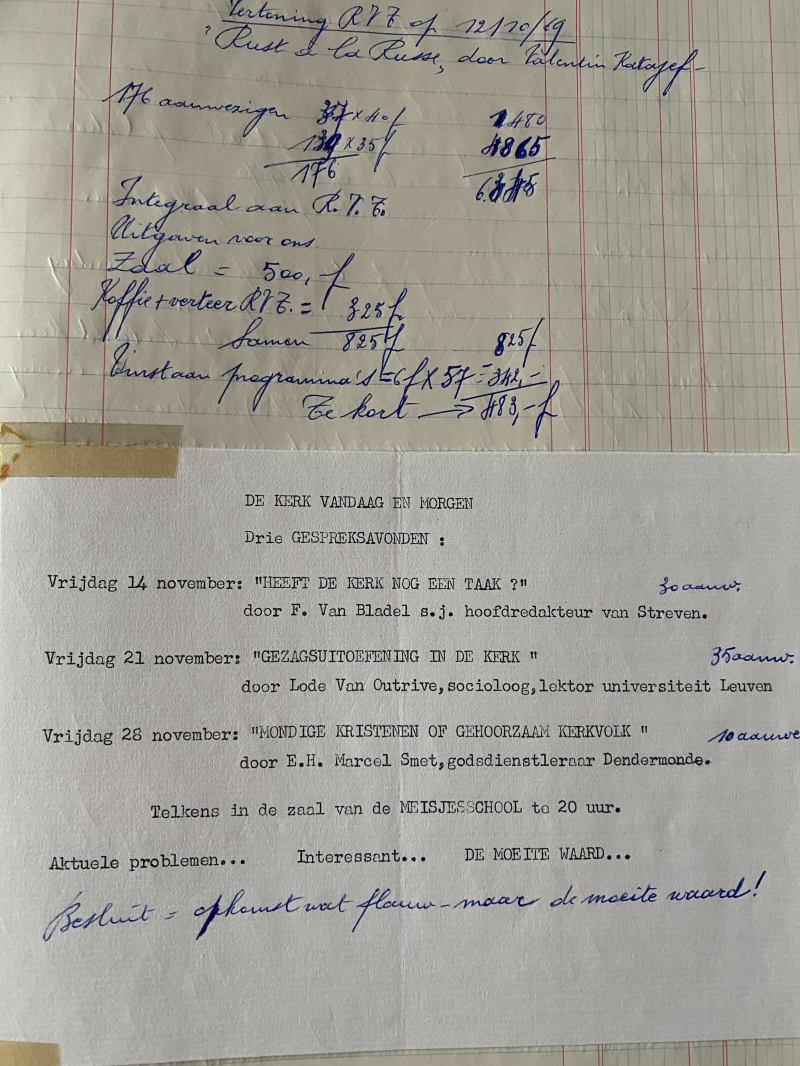 Vertoning RVT op 12/10/69
"Rust à la Russe, door Valentin Katajef-
176 aanwezigen 37 x 40f 1480
139 x 35f 4865
176 6.345
Integraal aan R.V.T.
Uitgaven voor ons
Zaal = 500,f
Koffie + verteer RVT. = 325f
Samen 825f 825f
Winst aan programma's = 6f X 57 = 342,-
Te kort → 483,-f
DE KERK VANDAAG EN MORGEN
Drie GESPREKSAVONDEN :
Vrijdag 14 november: "HEEFT DE KERK NOG EEN TAAK ?" 30 aanw.
door F. Van Bladel s.j. hoofdredakteur van Streven.
Vrijdag 21 november: "GEZAGSUITOEFENING IN DE KERK " 35 aanw.
door Lode Van Outrive,socioloog,lektor universiteit Leuven
Vrijdag 28 november: "MONDIGE KRISTENEN OF GEHOORZAAM KERKVOLK " 10 aanwe
door E.H. Marcel Smet,godsdienstleraar Dendermonde.
Telkens in de zaal van de MEISJESSCHOOL te 20 uur.
Aktuele problemen... Interessant... DE MOEITE WAARD...
Besluit = opkomst wat flauw - maar de moeite waard!